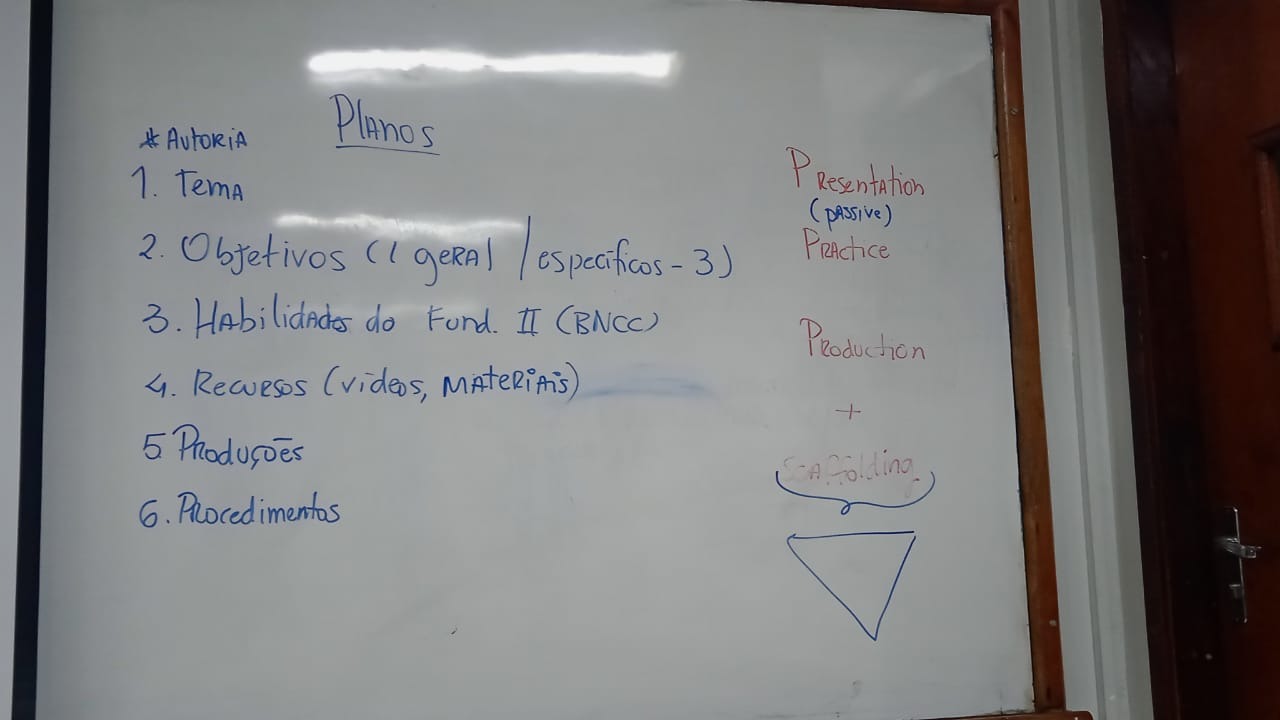 Planos
* Autoria
1. Tema
2. Objetivos (1 geral / específicos - 3)
3. Habilidades do Fund. II (BNCC)
4. Recursos (vídeos, materiais)
5. Produções
6. Procedimentos
Presentation
(passive)
Practice
Production
+
Scaffolding